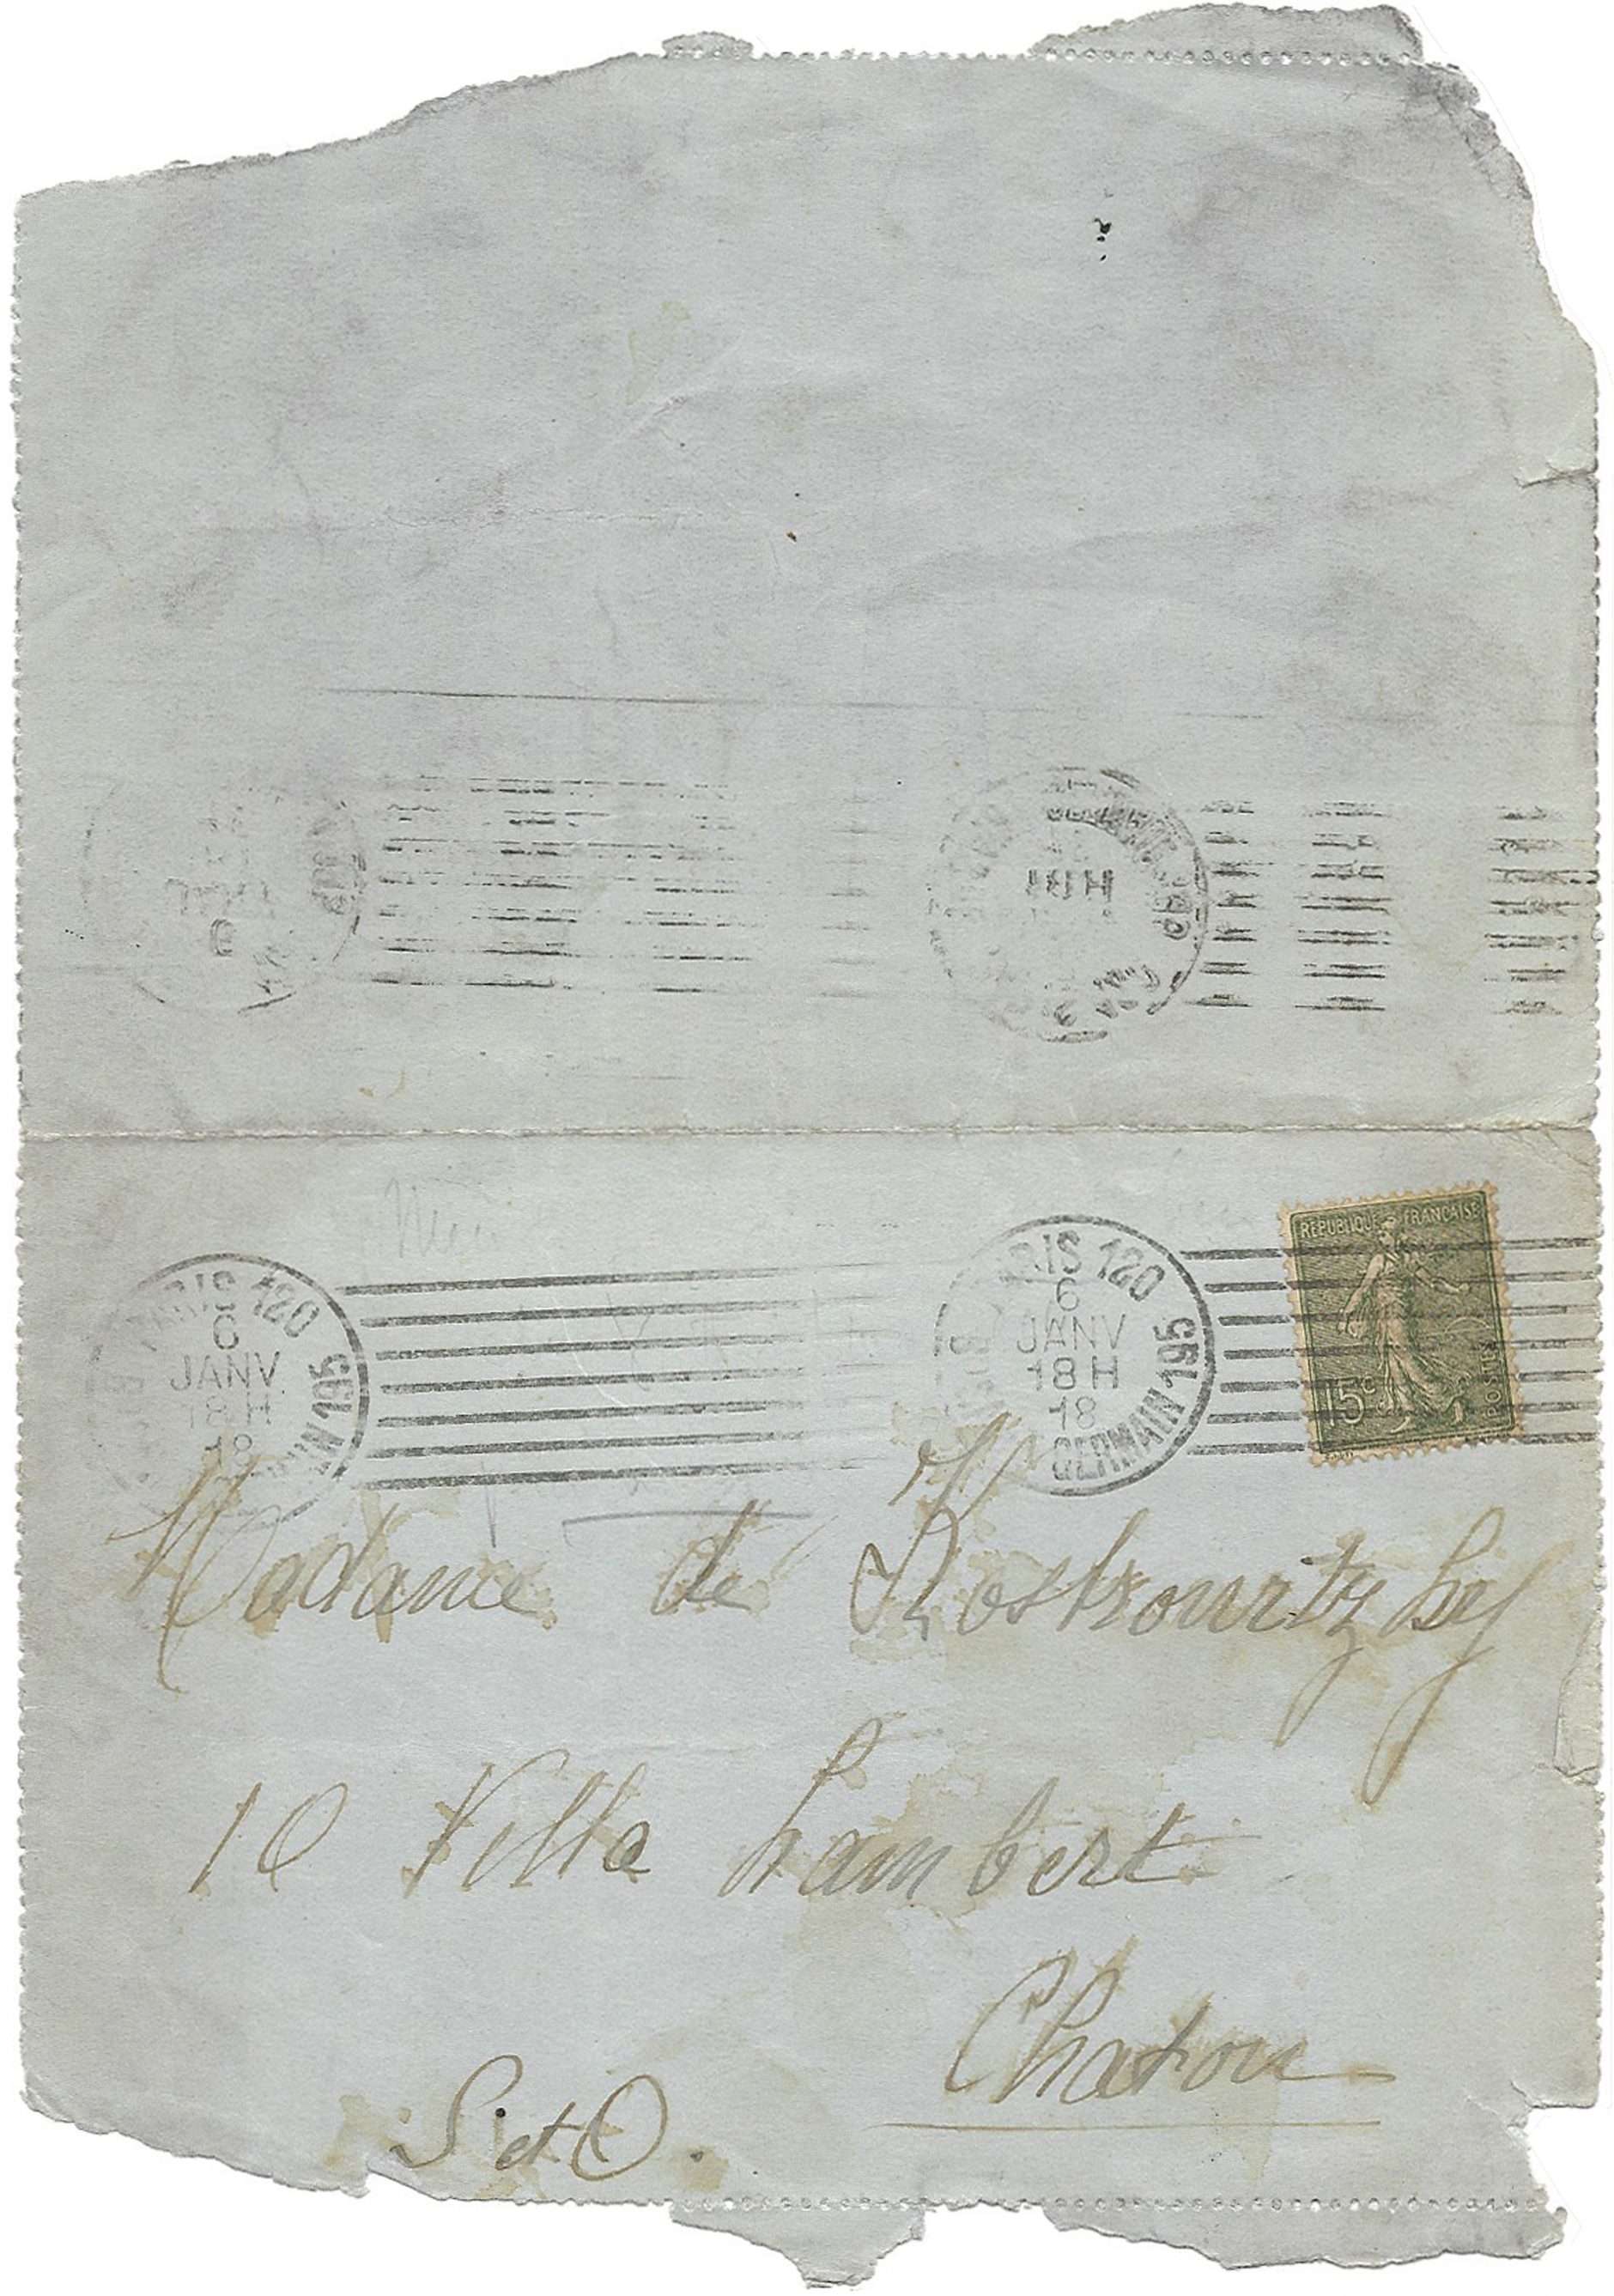 18 H
PARIS 120
6
JANV
18 H
18
PARIS 120
6
JANV
18 H
18
GERMAIN 195
RÉPUBLIQUE FRANÇAISE
15c
POSTES
Madame de Kostrowitzky
10 Villa Lambert
Chatou
S et O.